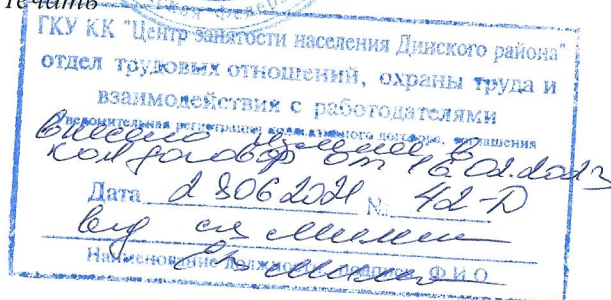 Печать
ГКУ КК "Центр занятости населения Динского района"
отдел трудовых отношений, охраны труда и
взаимодействия с работодателями
Уведомительная регистрация коллективного договора, соглашения
внесено в
кол договор от 16.02.2023
Дата 28062021 № 42-D
вед
Наименование должности, подпись, Ф.И.О